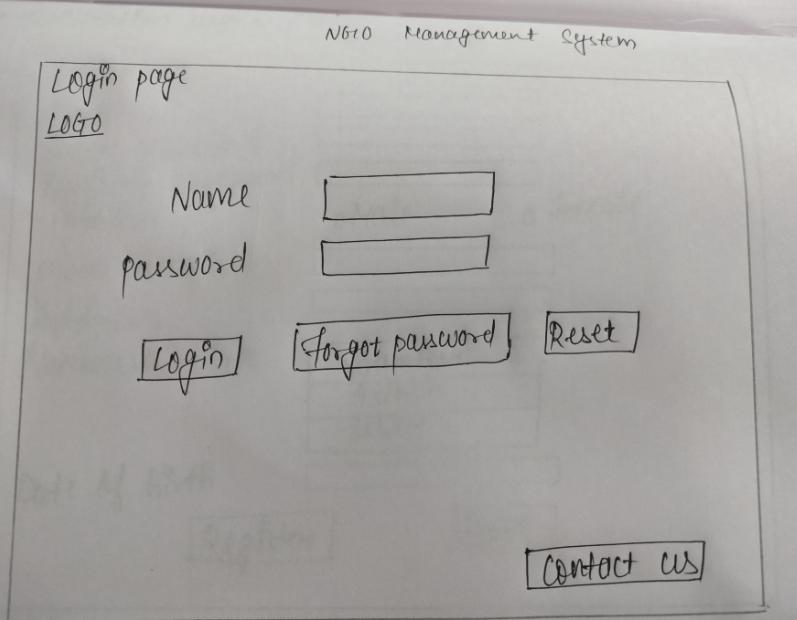 NGO Management System
Login page
LOGO
Name
password
Login Forgot password Reset
Contact us